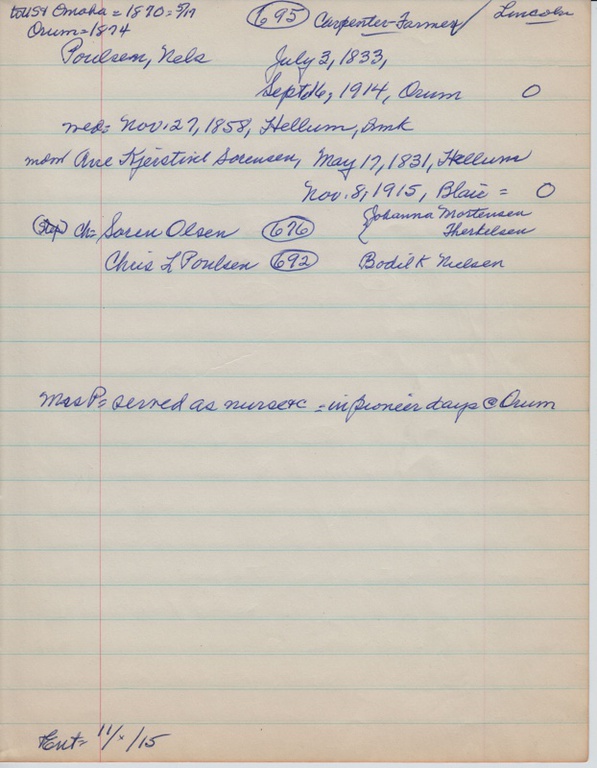 to USA Omaha = 1870 = 5/17 (695) Carpenter-Farmer / Lincoln
Orum = 1874
Poulsen, Nels July 3, 1833,
Sept 16, 1914, Orum O
med= Nov. 27, 1858, Hellum, Dmk
Ane Kjerstine Sorensen, May 17, 1831, Hellum
Nov. 8, 1915, Blair = O
(Step) Ch= Soren Olsen (676) { Johanna Mortensen
Therkelsen
Chris L Poulsen (692) Bodil K Nielsen
Mrs P= served as nurse &c = in pioneer days @ Orum
Ent= 11/x/15